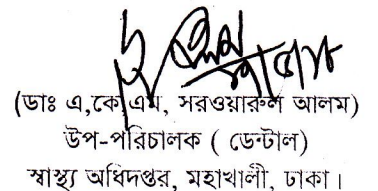 (ডাঃ এ,কে,এম, সরওয়ারুল আলম)
উপ-পরিচালক ( ডেন্টাল)
স্বাস্থ্য অধিদপ্তর, মহাখালী, ঢাকা।